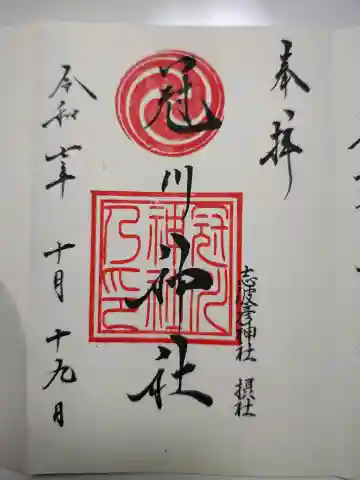 奉拝
冠川神社
冠川
神社
乃印
志波彦神社 摂社
令和七年 十月 十九日